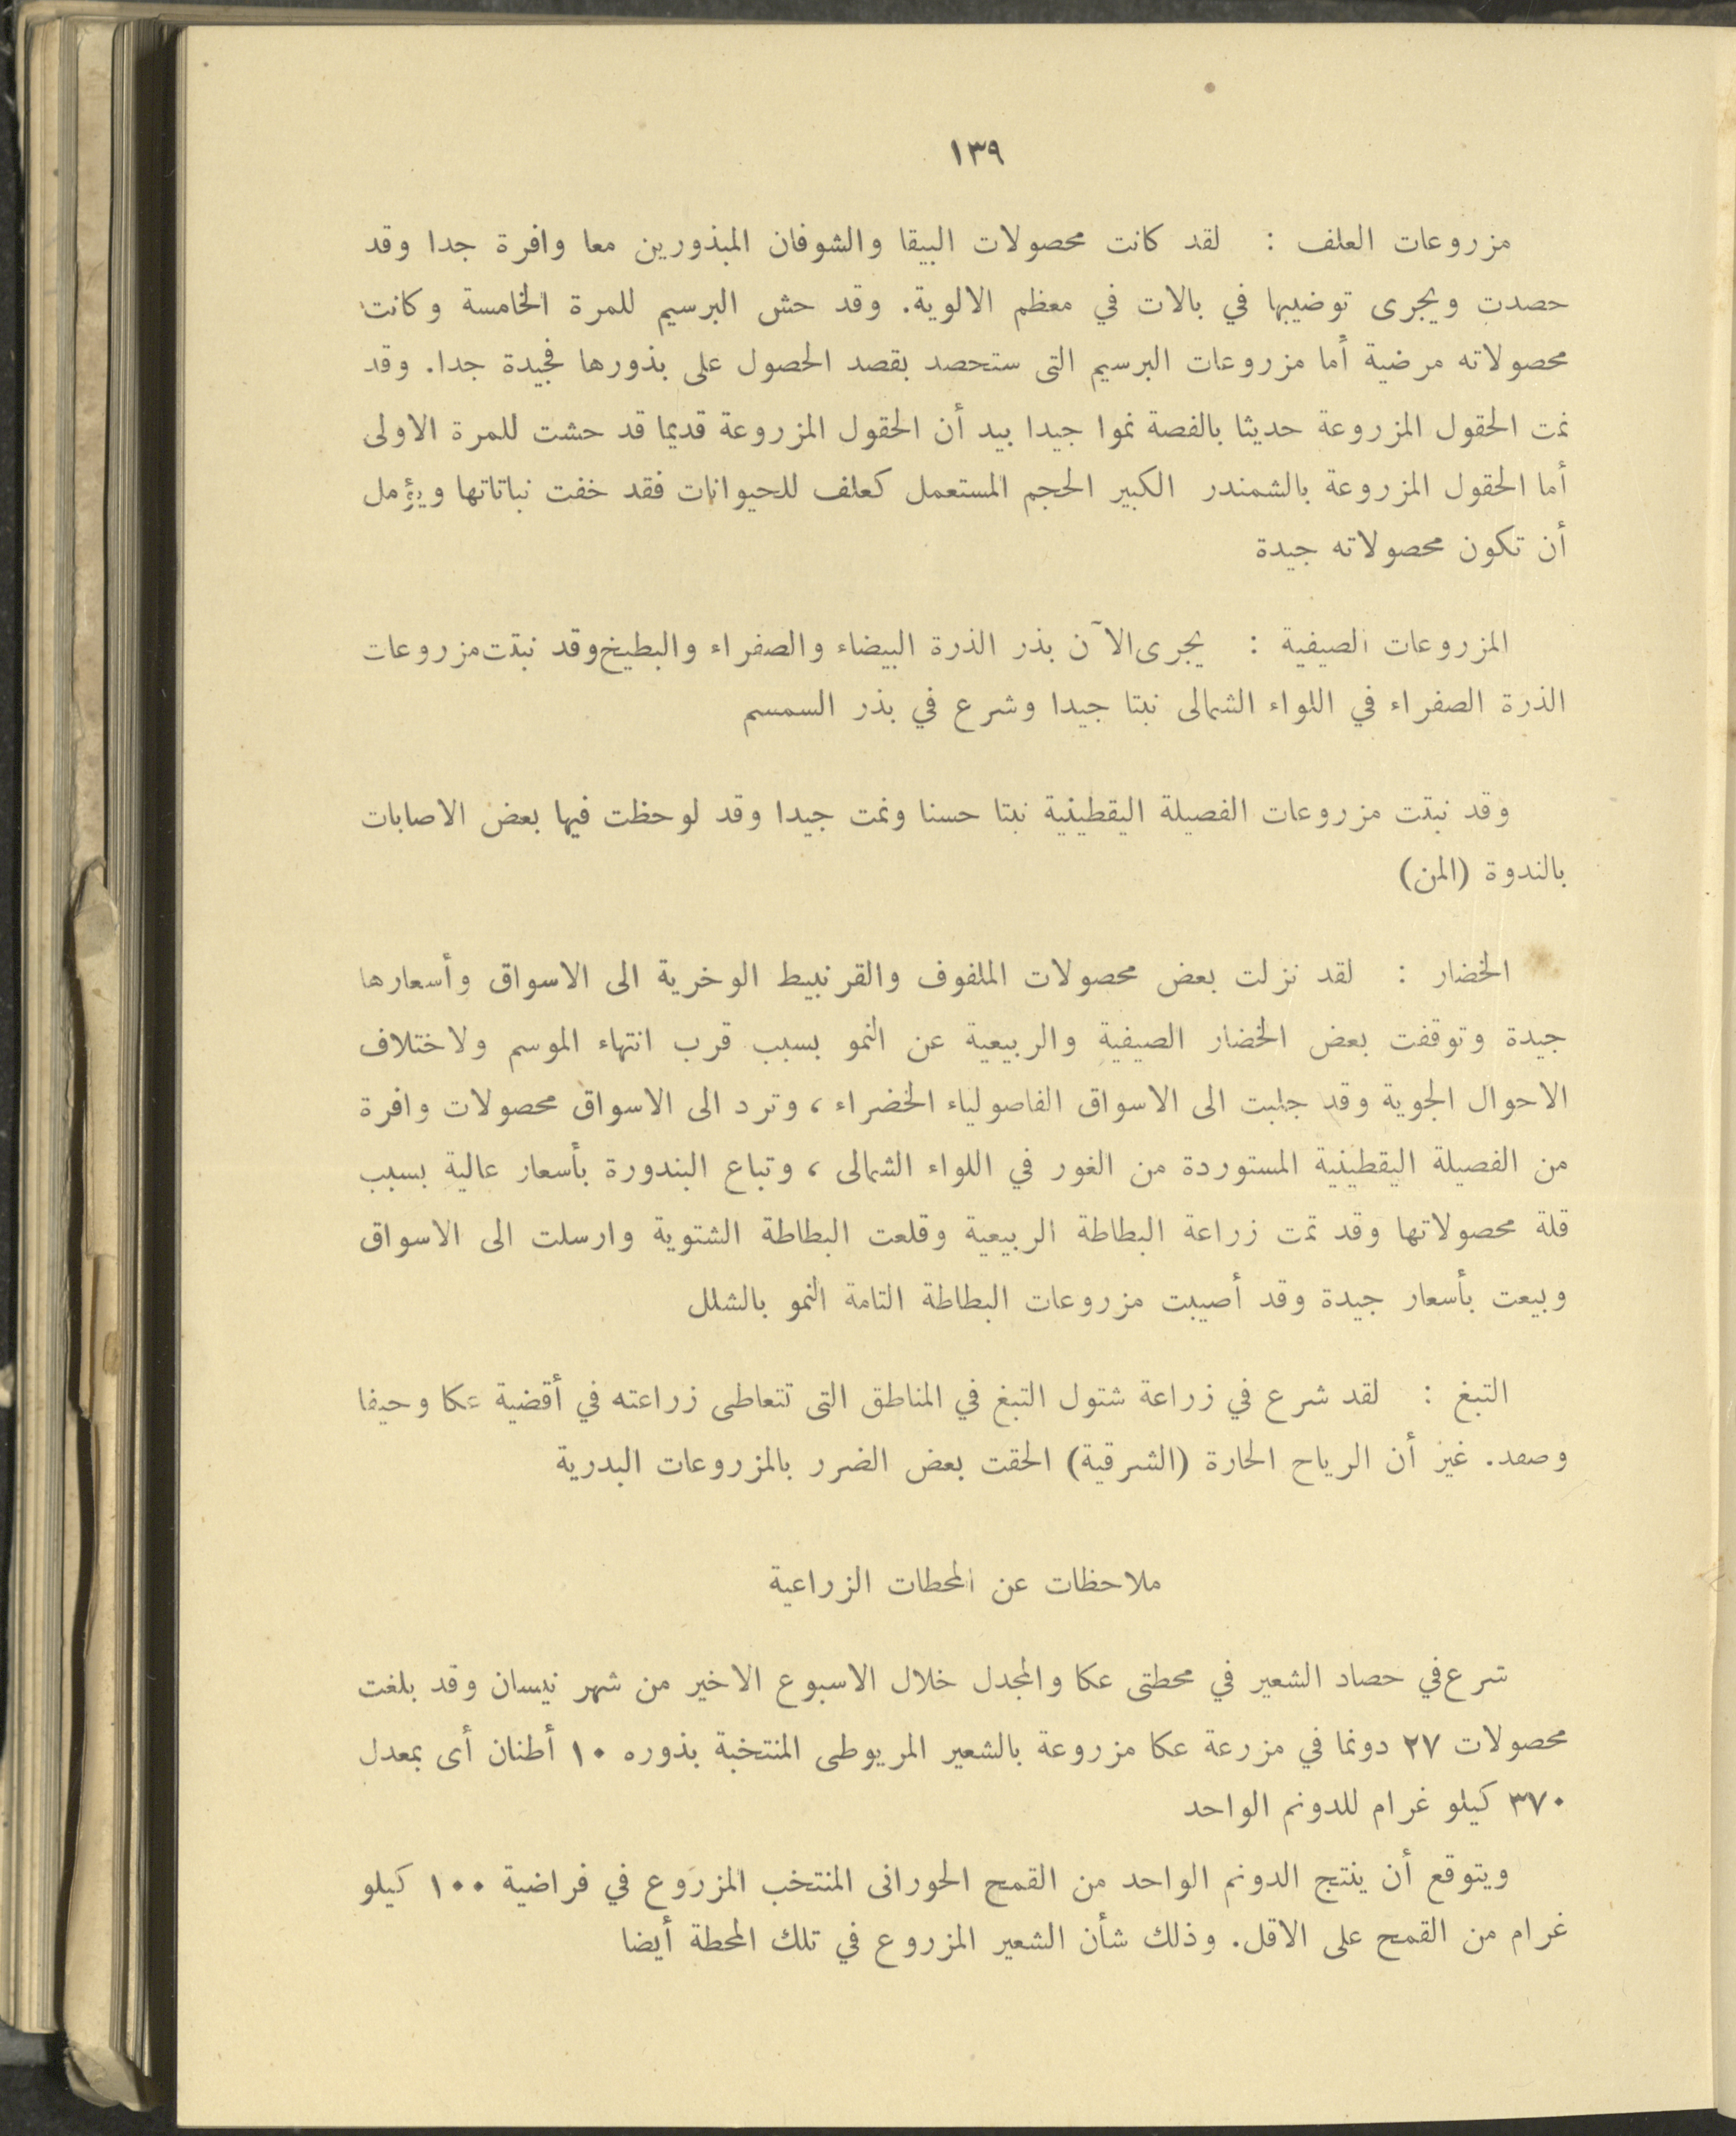 ١٣٩
مزروعات العلف : لقد كانت محصولات البيقا والشوفان المبذورين معا وافرة جدا وقد
حصدت ويجرى توضيبها في بالات في معظم الالوية. وقد حش البرسيم للمرة الخامسة وكانت
محصولاته مرضية أما مزروعات البرسيم التى ستحصد بقصد الحصول على بذورها فجيدة جدا. وقد
نمت الحقول المزروعة حديثا بالفصة نموا جيدا بيد أن الحقول المزروعة قديما قد حشت للمرة الاولى
أما الحقول المزروعة بالشمندر الكبير الحجم المستعمل كعلف للحيوانات فقد خفت نباتاتها ويؤمل
أن تكون محصولاته جيدة
المزروعات الصيفية : يجرى الآن بذر الذرة البيضاء والصفراء والبطيخ وقد نبتت مزروعات
الذرة الصفراء في اللواء الشمالى نبتا جيدا وشرع في بذر السمسم
وقد نبتت مزروعات الفصيلة اليقطينية نبتا حسنا ونمت جيدا وقد لوحظت فيها بعض الاصابات
بالندوة (المن)
الخضار : لقد نزلت بعض محصولات الملفوف والقرنبيط الوخرية الى الاسواق وأسعارها
جيدة وتوقفت بعض الخضار الصيفية والربيعية عن النمو بسبب قرب انتهاء الموسم ولاختلاف
الاحوال الجوية وقد جلبت الى الاسواق الفاصولياء الخضراء ، وترد الى الاسواق محصولات وافرة
من الفصيلة اليقطينية المستوردة من الغور في اللواء الشمالى ، وتباع البندورة بأسعار عالية بسبب
قلة محصولاتها وقد تمت زراعة البطاطة الربيعية وقلعت البطاطة الشتوية وارسلت الى الاسواق
وبيعت بأسعار جيدة وقد أصيبت مزروعات البطاطة التامة النمو بالشلل
التبغ : لقد شرع في زراعة شتول التبغ في المناطق التى تتعاطى زراعته في أقضية عكا وحيفا
وصفد. غير أن الرياح الحارة (الشرقية) الحقت بعض الضرر بالمزروعات البدرية
ملاحظات عن المحطات الزراعية
شرع في حصاد الشعير في محطتى عكا والمجدل خلال الاسبوع الاخير من شهر نيسان وقد بلغت
محصولات ٢٧ دونما في مزرعة عكا مزروعة بالشعير المريوطى المنتخبة بذوره ١٠ أطنان أى بمعدل
٣٧٠ كيلو غرام للدونم الواحد
ويتوقع أن ينتج الدونم الواحد من القمح الحورانى المنتخب المزروع في فراضية ١٠٠ كيلو
غرام من القمح على الاقل. وذلك شأن الشعير المزروع في تلك المحطة أيضا